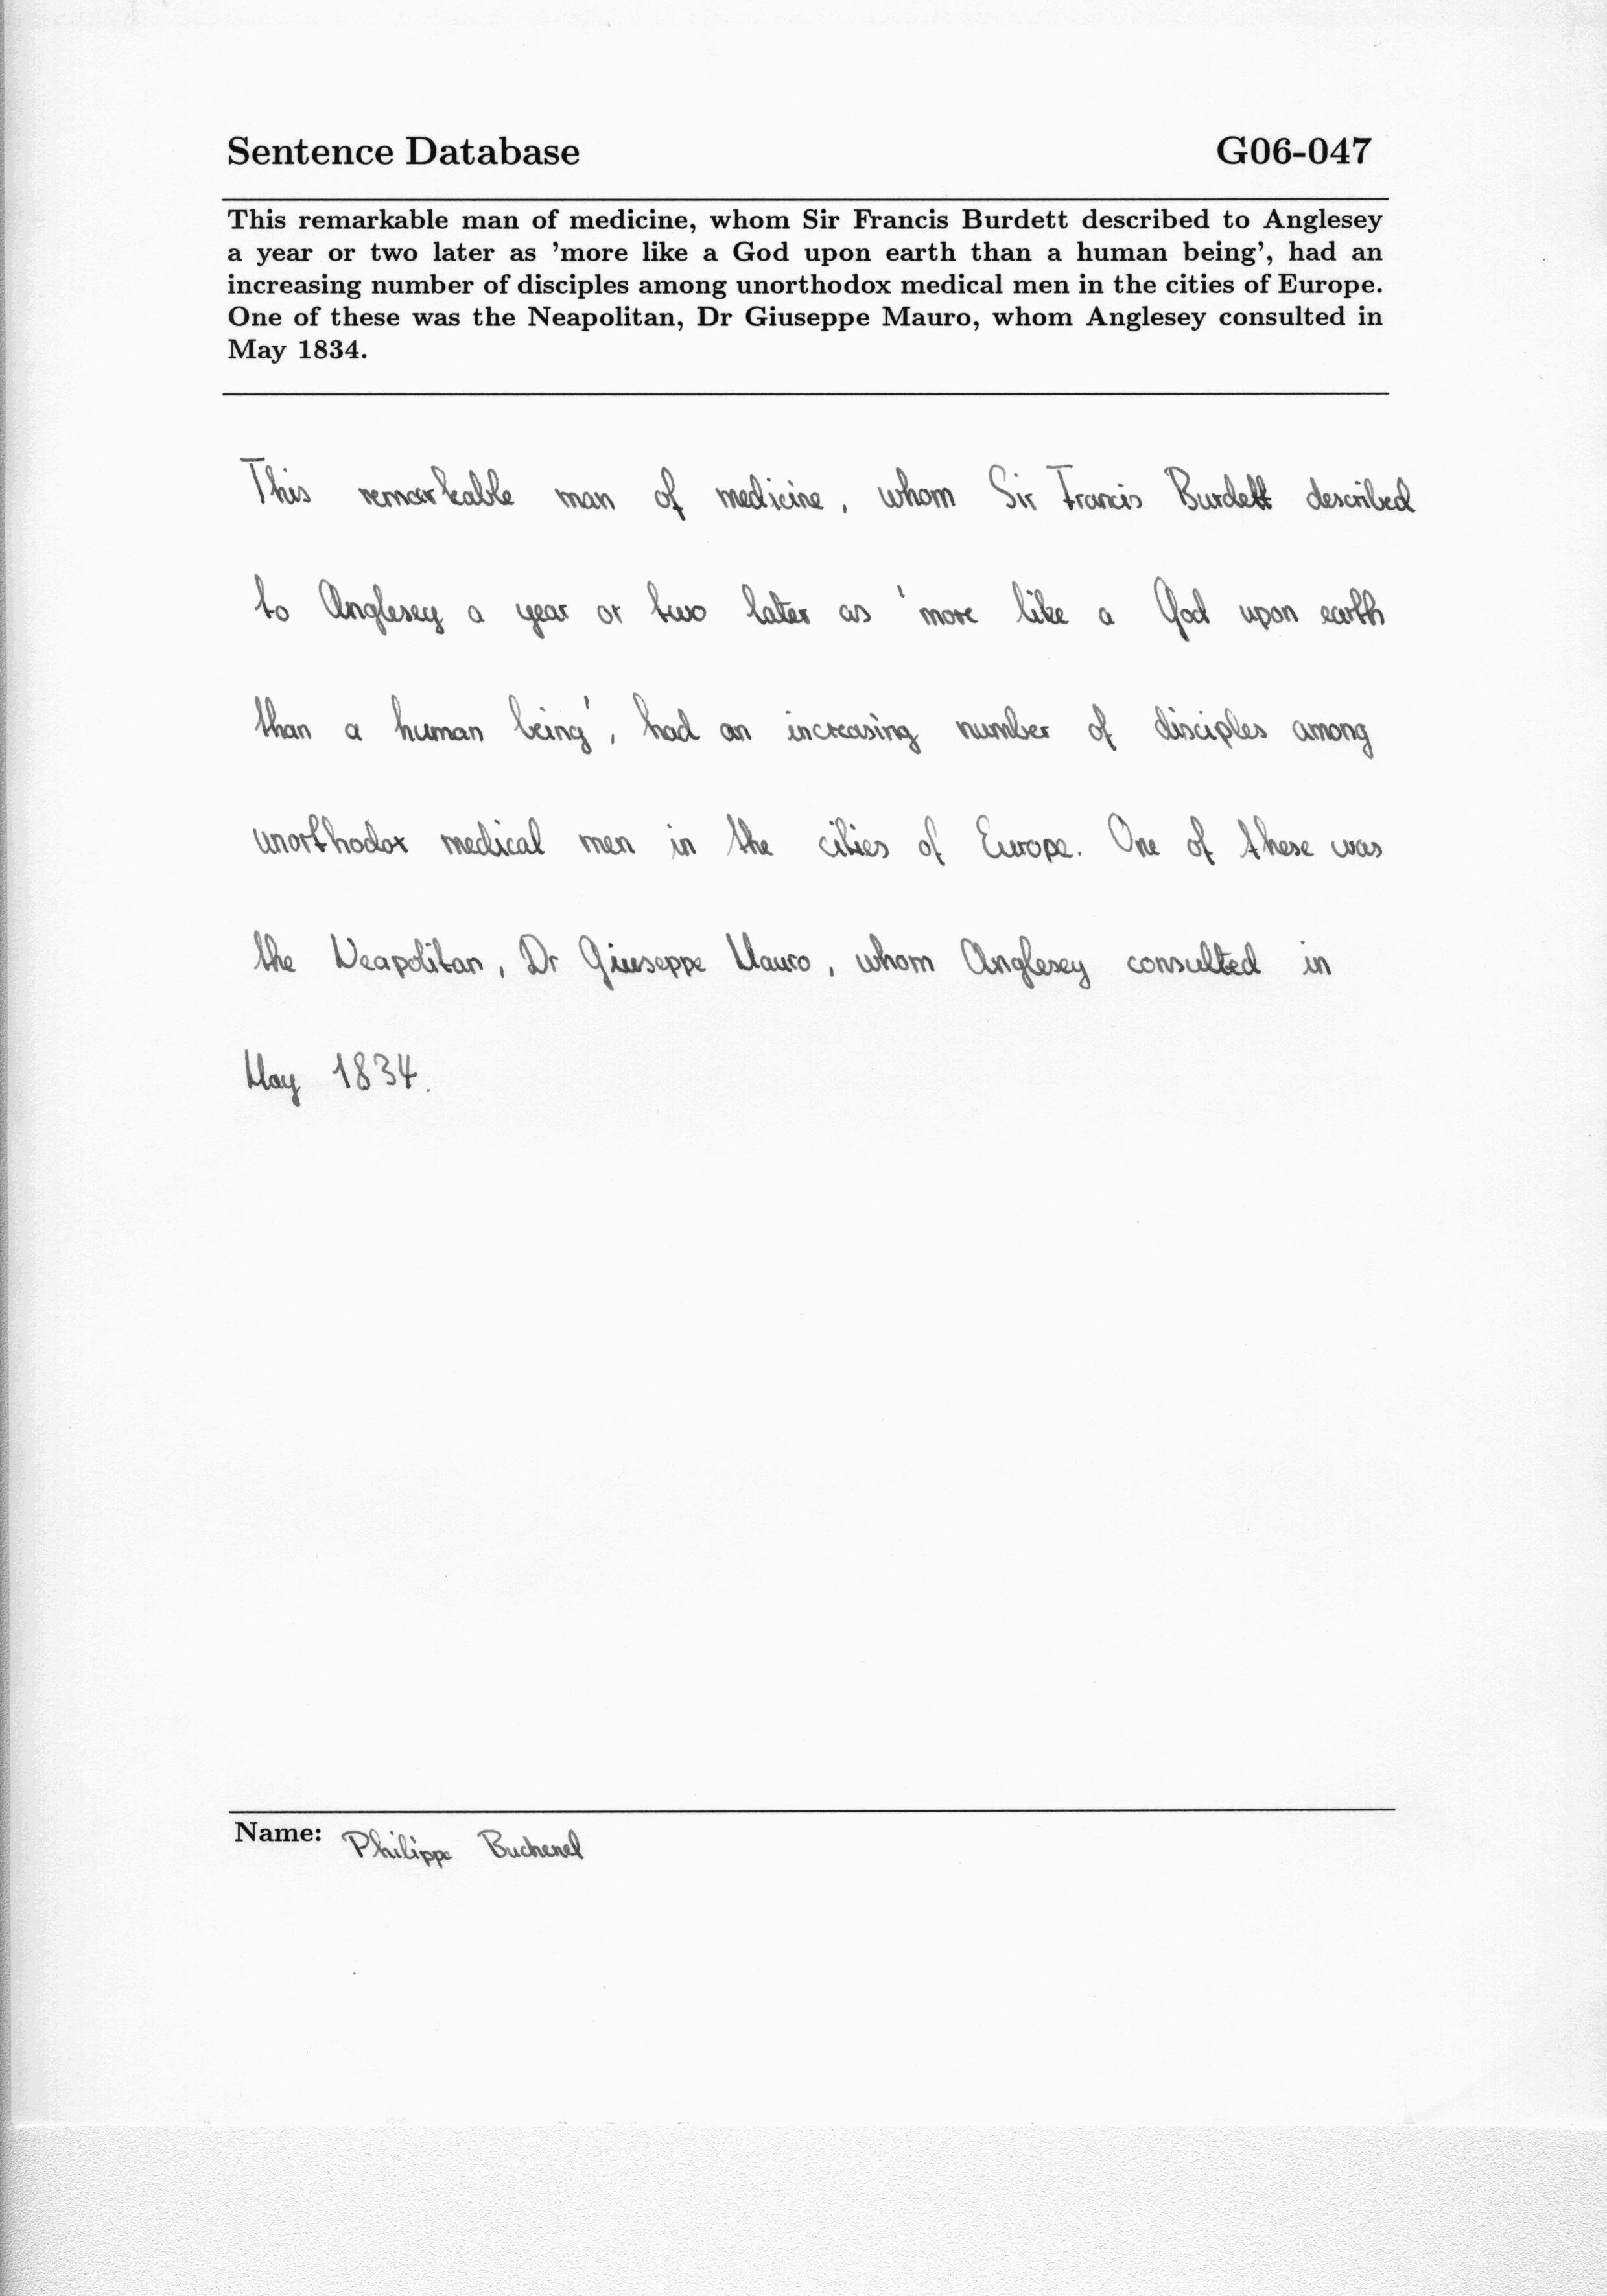 Sentence Database G06-047
This remarkable man of medicine, whom Sir Francis Burdett described to Anglesey
a year or two later as 'more like a God upon earth than a human being', had an
increasing number of disciples among unorthodox medical men in the cities of Europe.
One of these was the Neapolitan, Dr Giuseppe Mauro, whom Anglesey consulted in
May 1834.
This remarkable man of medicine, whom Sir Francis Burdett described
to Anglesey a year or two later as 'more like a God upon earth
than a human being', had an increasing number of disciples among
unorthodox medical men in the cities of Europe. One of these was
the Neapolitan, Dr Giuseppe Mauro, whom Anglesey consulted in
May 1834.
Name: Philippe Buchenel